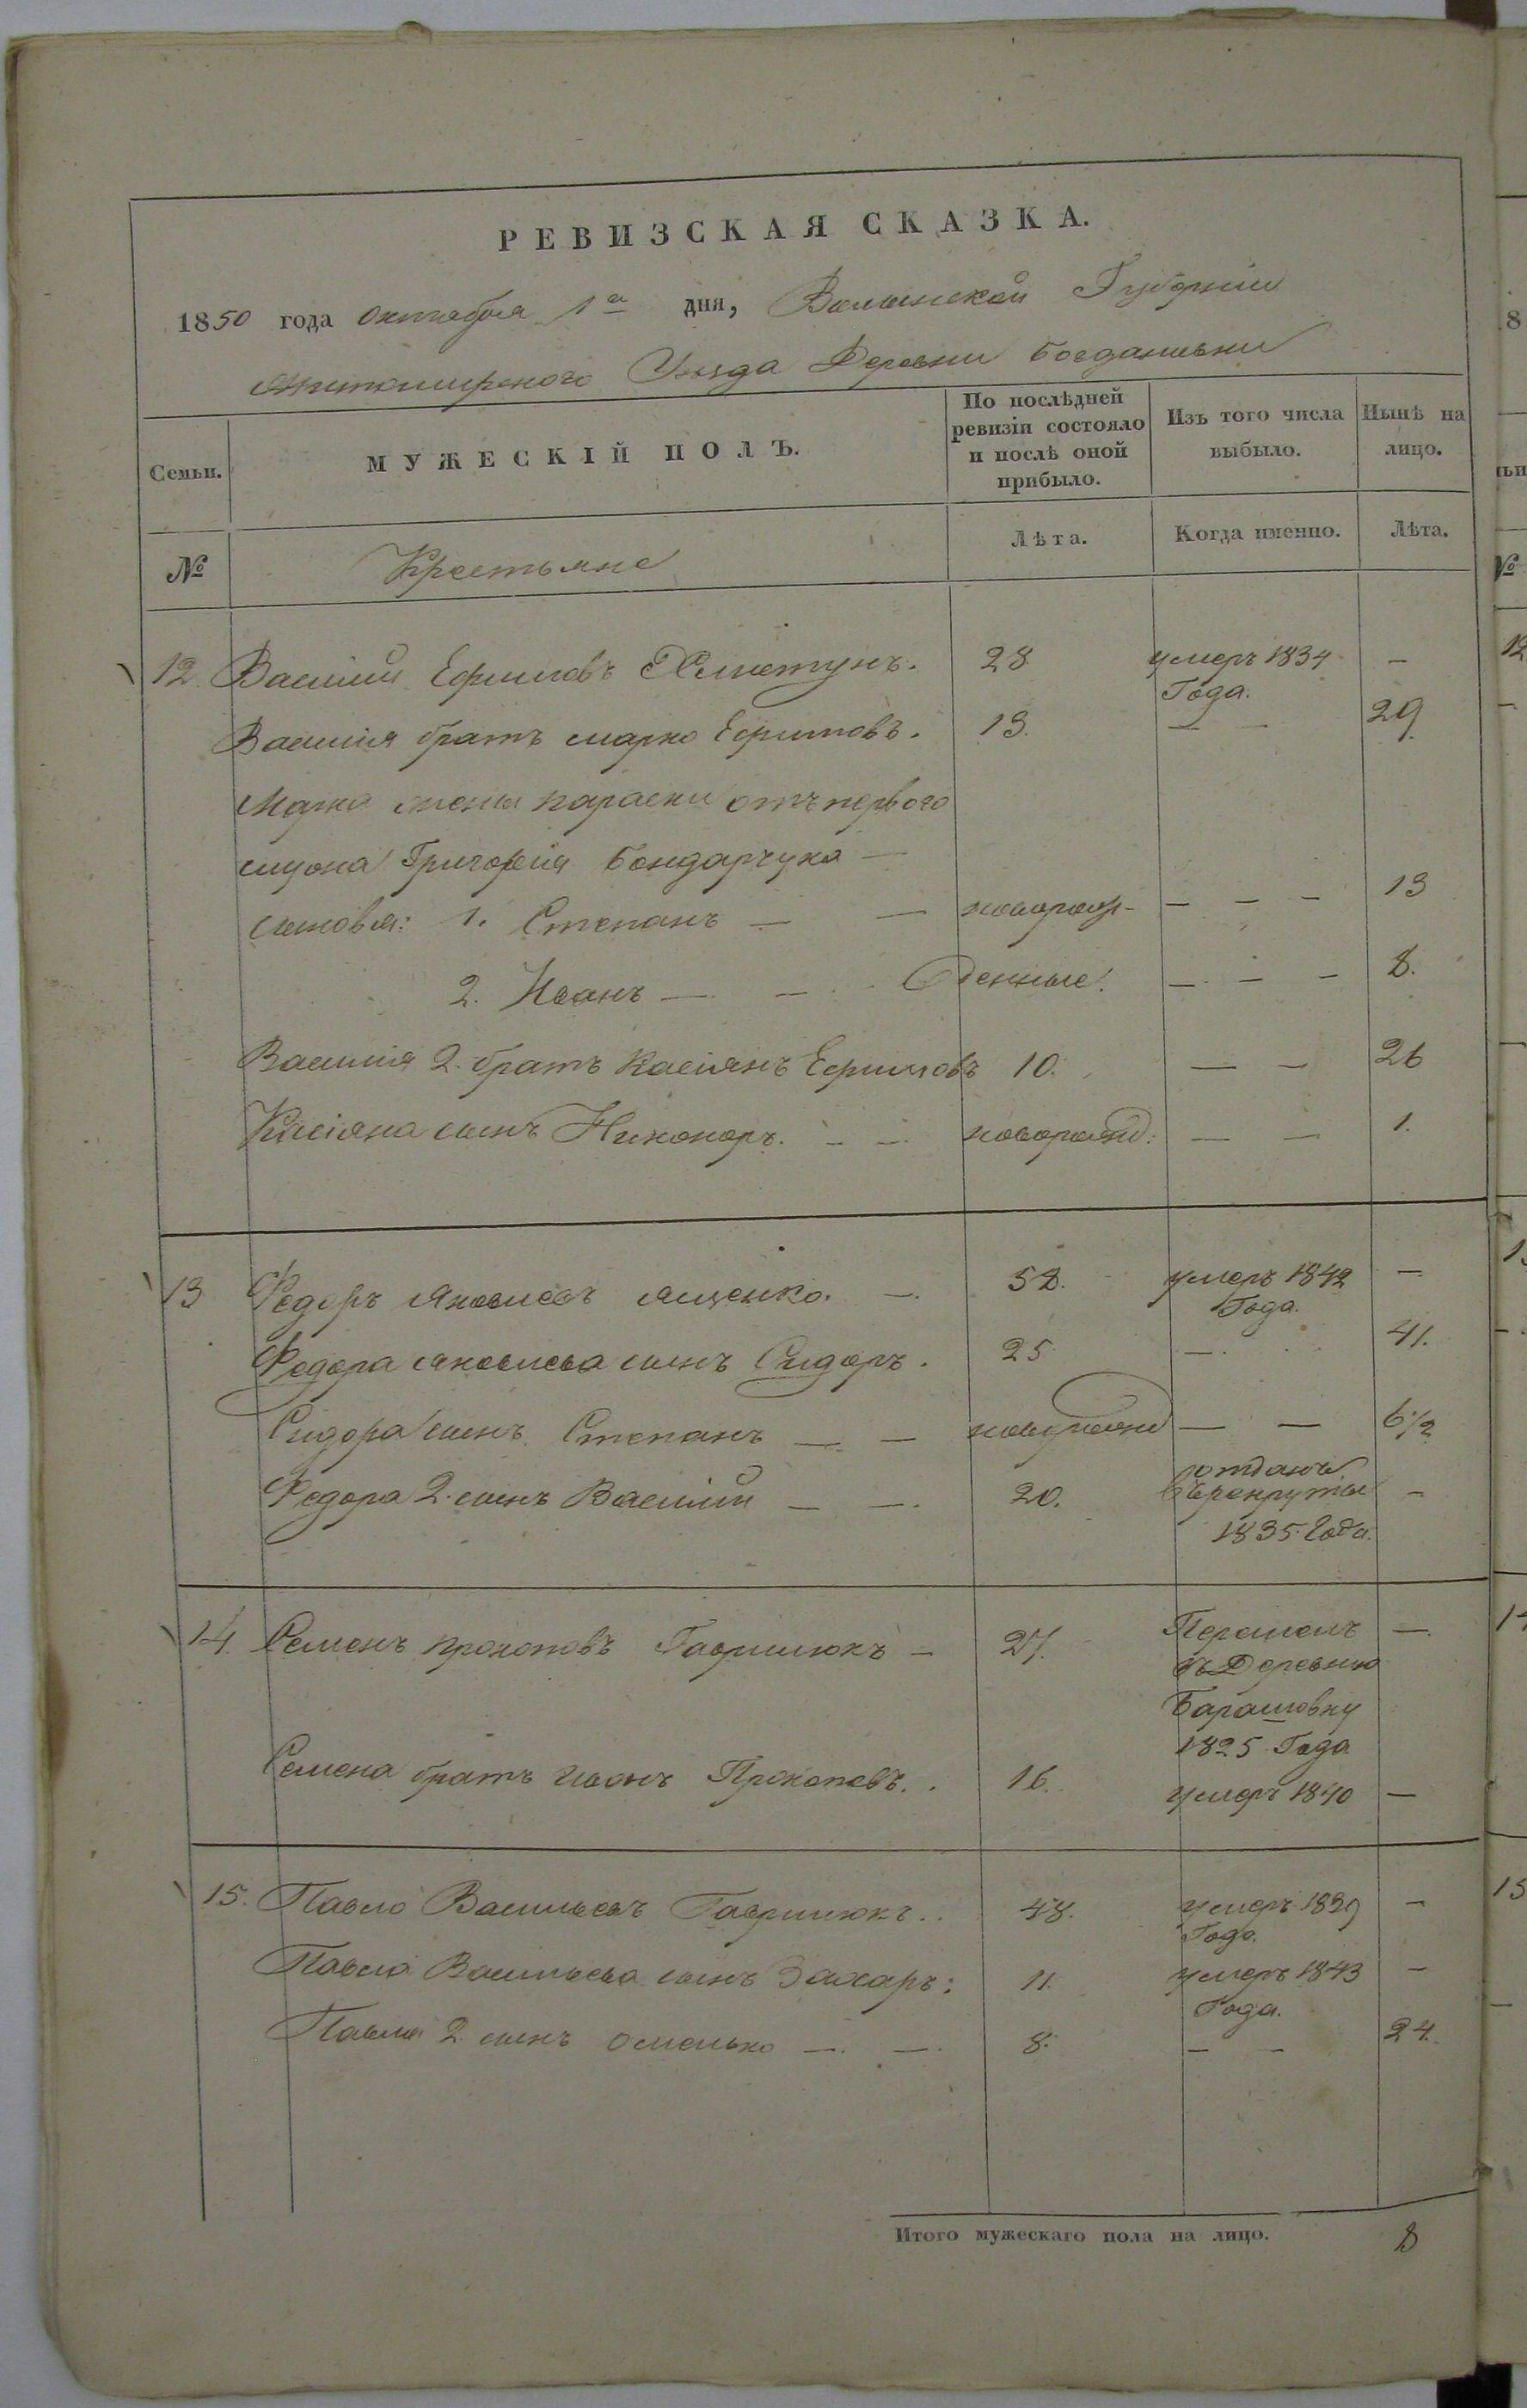 РЕВИЗСКАЯ СКАЗКА.
1850 года октября 1го дня, Волынской Губерніи
Житомирского Уезда Деревни Богданивки
Семьи. МУЖЕСКІЙ ПОЛЪ. По послѣдней ревизіи состояло и послѣ оной прибыло. Изъ того числа выбыло. Нынѣ на лицо.
№ Крестьяне Лѣта. Когда именно. Лѣта.
12. Василий Ефимовъ 28 умеръ 1834 Года. —
Василія братъ марко Ефимовъ. 13. — — 29
Марка жены параски отъ первого
мужа Григорія Бондарчука —
сыновья: 1. Степанъ — — новорож- — — — 13
2. Иванъ — — денные. — — — 8.
Василія 2. братъ Касіянъ Ефимовъ 10. — — 26
Касіяна сынъ Никоноръ. — — новорожд: — — 1.
13 Федоръ Яковлевъ Ященко. — 52. умеръ 1842 Года. —
Федора Яковлева сынъ Сидоръ. 25 — 41.
Сидора сынъ Степанъ — — новорожд — — 6 1/2
Федора 2. сынъ Василий — — 20. отданъ въ рекруты 1835. Года. —
14. Семенъ Прокоповъ Гаврилюкъ — 27. Перешелъ въ Деревню Барашовку 1825 Года —
Семена братъ Иванъ Прокоповъ. . 16. умеръ 1840 —
15. Павло Васильевъ Гаврилюкъ. . 48. умеръ 1839 Года. —
Павла Васильева сынъ Захаръ: 11. умеръ 1843 Года. —
Павла 2. сынъ Омелько — — 8. — — 24.
Итого мужескаго пола на лицо. 8